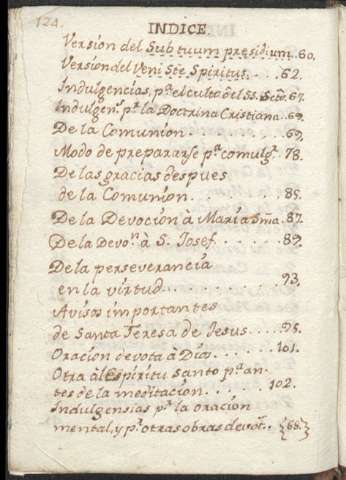 124.
INDICE.
Version del Sub tuum presidium..60.
Version del Veni Ste. Spiritus....62.
Indulgencias, pa. el culto del SS. Scto. 67.
Indulgens. pa. la Doctrina Cristiana..69.
De la Comunion.........69.
Modo de prepararse pa. comulgr. 78.
De las gracias despues
de la Comunion..........85.
De la Devocion à Maria Sma. 87.
De la Devon. à S. Josef.......89.
De la perseverancia
en la virtud.............93.
Avisos importantes
de Santa Teresa de Jesus....95.
Oracion devota à Dios......101.
Otra àl Espiritu Santo pa. an-
tes de la meditacion....102.
Indulgensias pa. la oracion
mental, y pa. otras obras devot..{68.}